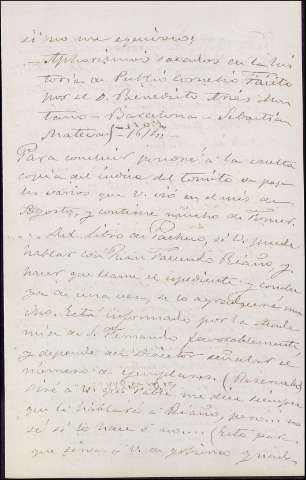 si no me equivoco:
- Aphorismos sacados de la his
toria de Publio Cornelio Tacito
por el D. Benedicto Arias Mon
tano - Barcelona - Sebastian
Matevad - 1614 -
Para concluir pondré á la vuelta
copia del indice del tomito de pape
les varios que V. vió en el mes de
Agosto, y contiene mucho de Forner.
Del Libro de Pacheco, si V. puede
hablar con Juan Facundo Riaño y
hacer que llame el expediente y conclu
ya de una vez, se lo agradeceré mu
cho. Está informado por la Acade
mia de S. Fernando favorablemente
y depende del Director señalar el
número de ejemplares. (Reservado)
diré á V. que me dice siempre
que le hablará á Riaño, pero... no
sé si lo hace ó no... (Esto para
que sirva á V. de gobierno y nada